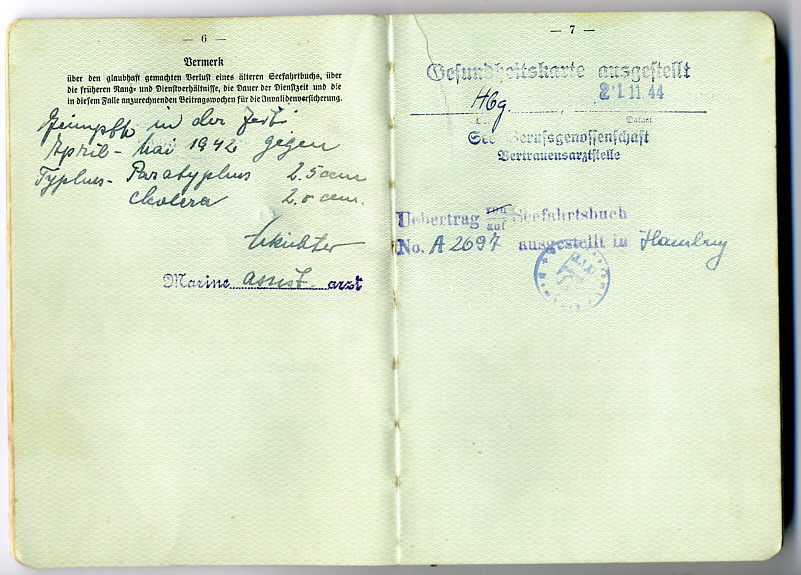 — 6 —
Vermerk
über den glaubhaft gemachten Verlust eines älteren Seefahrtbuchs, über
die früheren Rang- und Dienstverhältnisse, die Dauer der Dienstzeit und die
in diesem Falle anzurechnenden Beitragswochen für die Invalidenversicherung.
Geimpft in der Zeit
April - Mai 1942 gegen
Typhus- Paratyphus 2.5 ccm
Cholera 2.0 ccm.
Marine assist. arzt
— 7 —
Gesundheitskarte ausgestellt
Hbg. 21.11.44
Datum
See Berufsgenossenschaft
Vertrauensarztstelle
Uebertrag von/auf Seefahrtsbuch
No. A 2697 ausgestellt in Hamburg